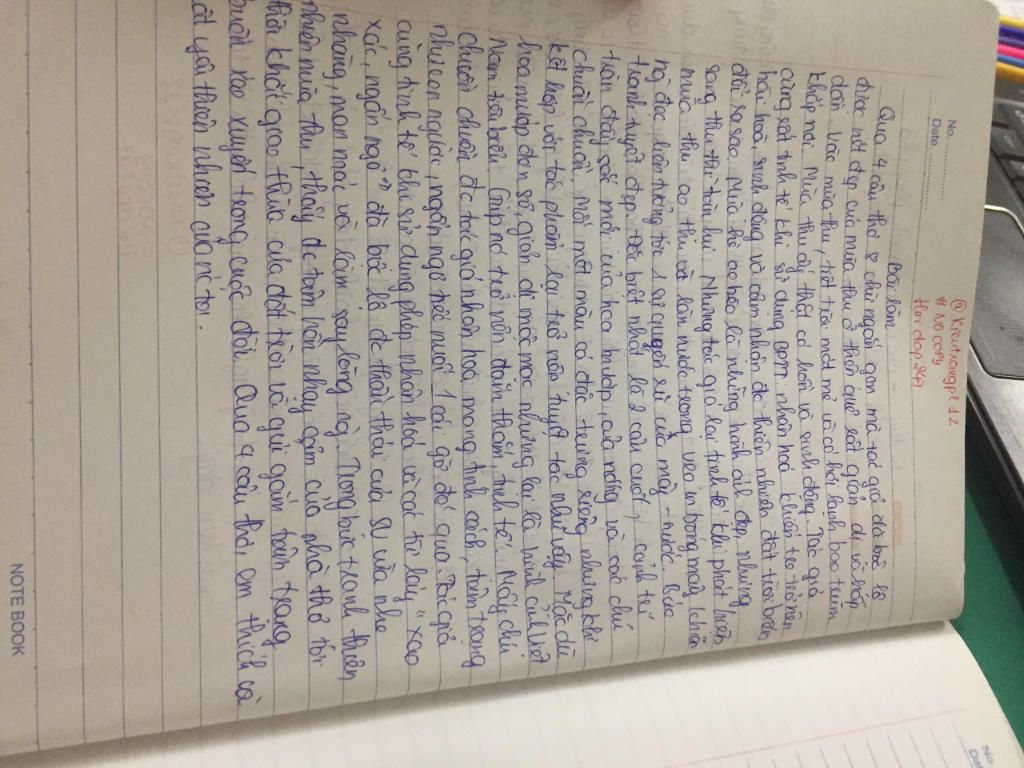 No. ..............
Date ..............
@ Kieutrangple 12
# NO copy
Bài làm
Qua 4 câu thơ 8 chữ ngắn gọn mà tác giả đã bộc lộ
được nét đẹp của mùa thu ở thôn quê rất giản dị và hấp
dẫn. Vào mùa thu, tiết trời mát mẻ và có hơi lạnh bao trùm
khắp nơi. Mùa thu ấy thật có hồn và sinh động. Tác giả
càng rất tinh tế khi sử dụng bpnt nhân hoá khiến nó trở nên
hài hoà, sinh động và cảm nhận đc thiên nhiên đất trời bước
đổi ra sao. Mùa hè oi bức là những hình ảnh đẹp nhưng
sang thu thì bùi lui. Nhưng tác giả lại tinh tế khi phát hiện
mùa thu ao thu và làn nước trong veo in bóng mây, khiến
ng đọc liên tưởng tới 1 sự quyện rũ của mây - nước. Bức
tranh tuyệt đẹp. Đặc biệt nhất là 2 câu cuối, cảnh tứ
tràn đầy sắc mới của hoa mướp, của rồng và các chú
chuồn chuồn. Mỗi một màu có đặc trưng riêng nhưng khi
kết hợp với tác phẩm lại trở nên tuyệt tác như vậy. Mặc dù
hoa mướp đơn sơ, giản dị mộc mạc nhưng lại là hình ảnh Việt
Nam tiêu biểu. Giúp nó trở nên đằm thắm, tinh tế. Mấy chú
chuồn chuồn đc tác giả nhân hoá mang tính cách, tâm trạng
như con người, ngẩn ngơ tiếc nuối 1 cái gì đó đã qua. Tác giả
cũng tinh tế khi sử dụng phép nhân hoá và các từ láy " xao
xác, ngẩn ngơ" => đã bộc lộ đc thần thái của sự vừa nhẹ
nhàng, man mác và làm say lòng ng. Trong bức tranh thiên
nhiên mùa thu, thấy đc tâm hồn nhạy cảm của nhà thơ tới
thời khắc giao thừa của đất trời và gửi gắm tâm trạng
buồn xao xuyến trong cuộc đời. Qua 4 câu thơ, em thích và
rất yêu thiên nhiên của nc tôi.
NOTE BOOK
No
Da